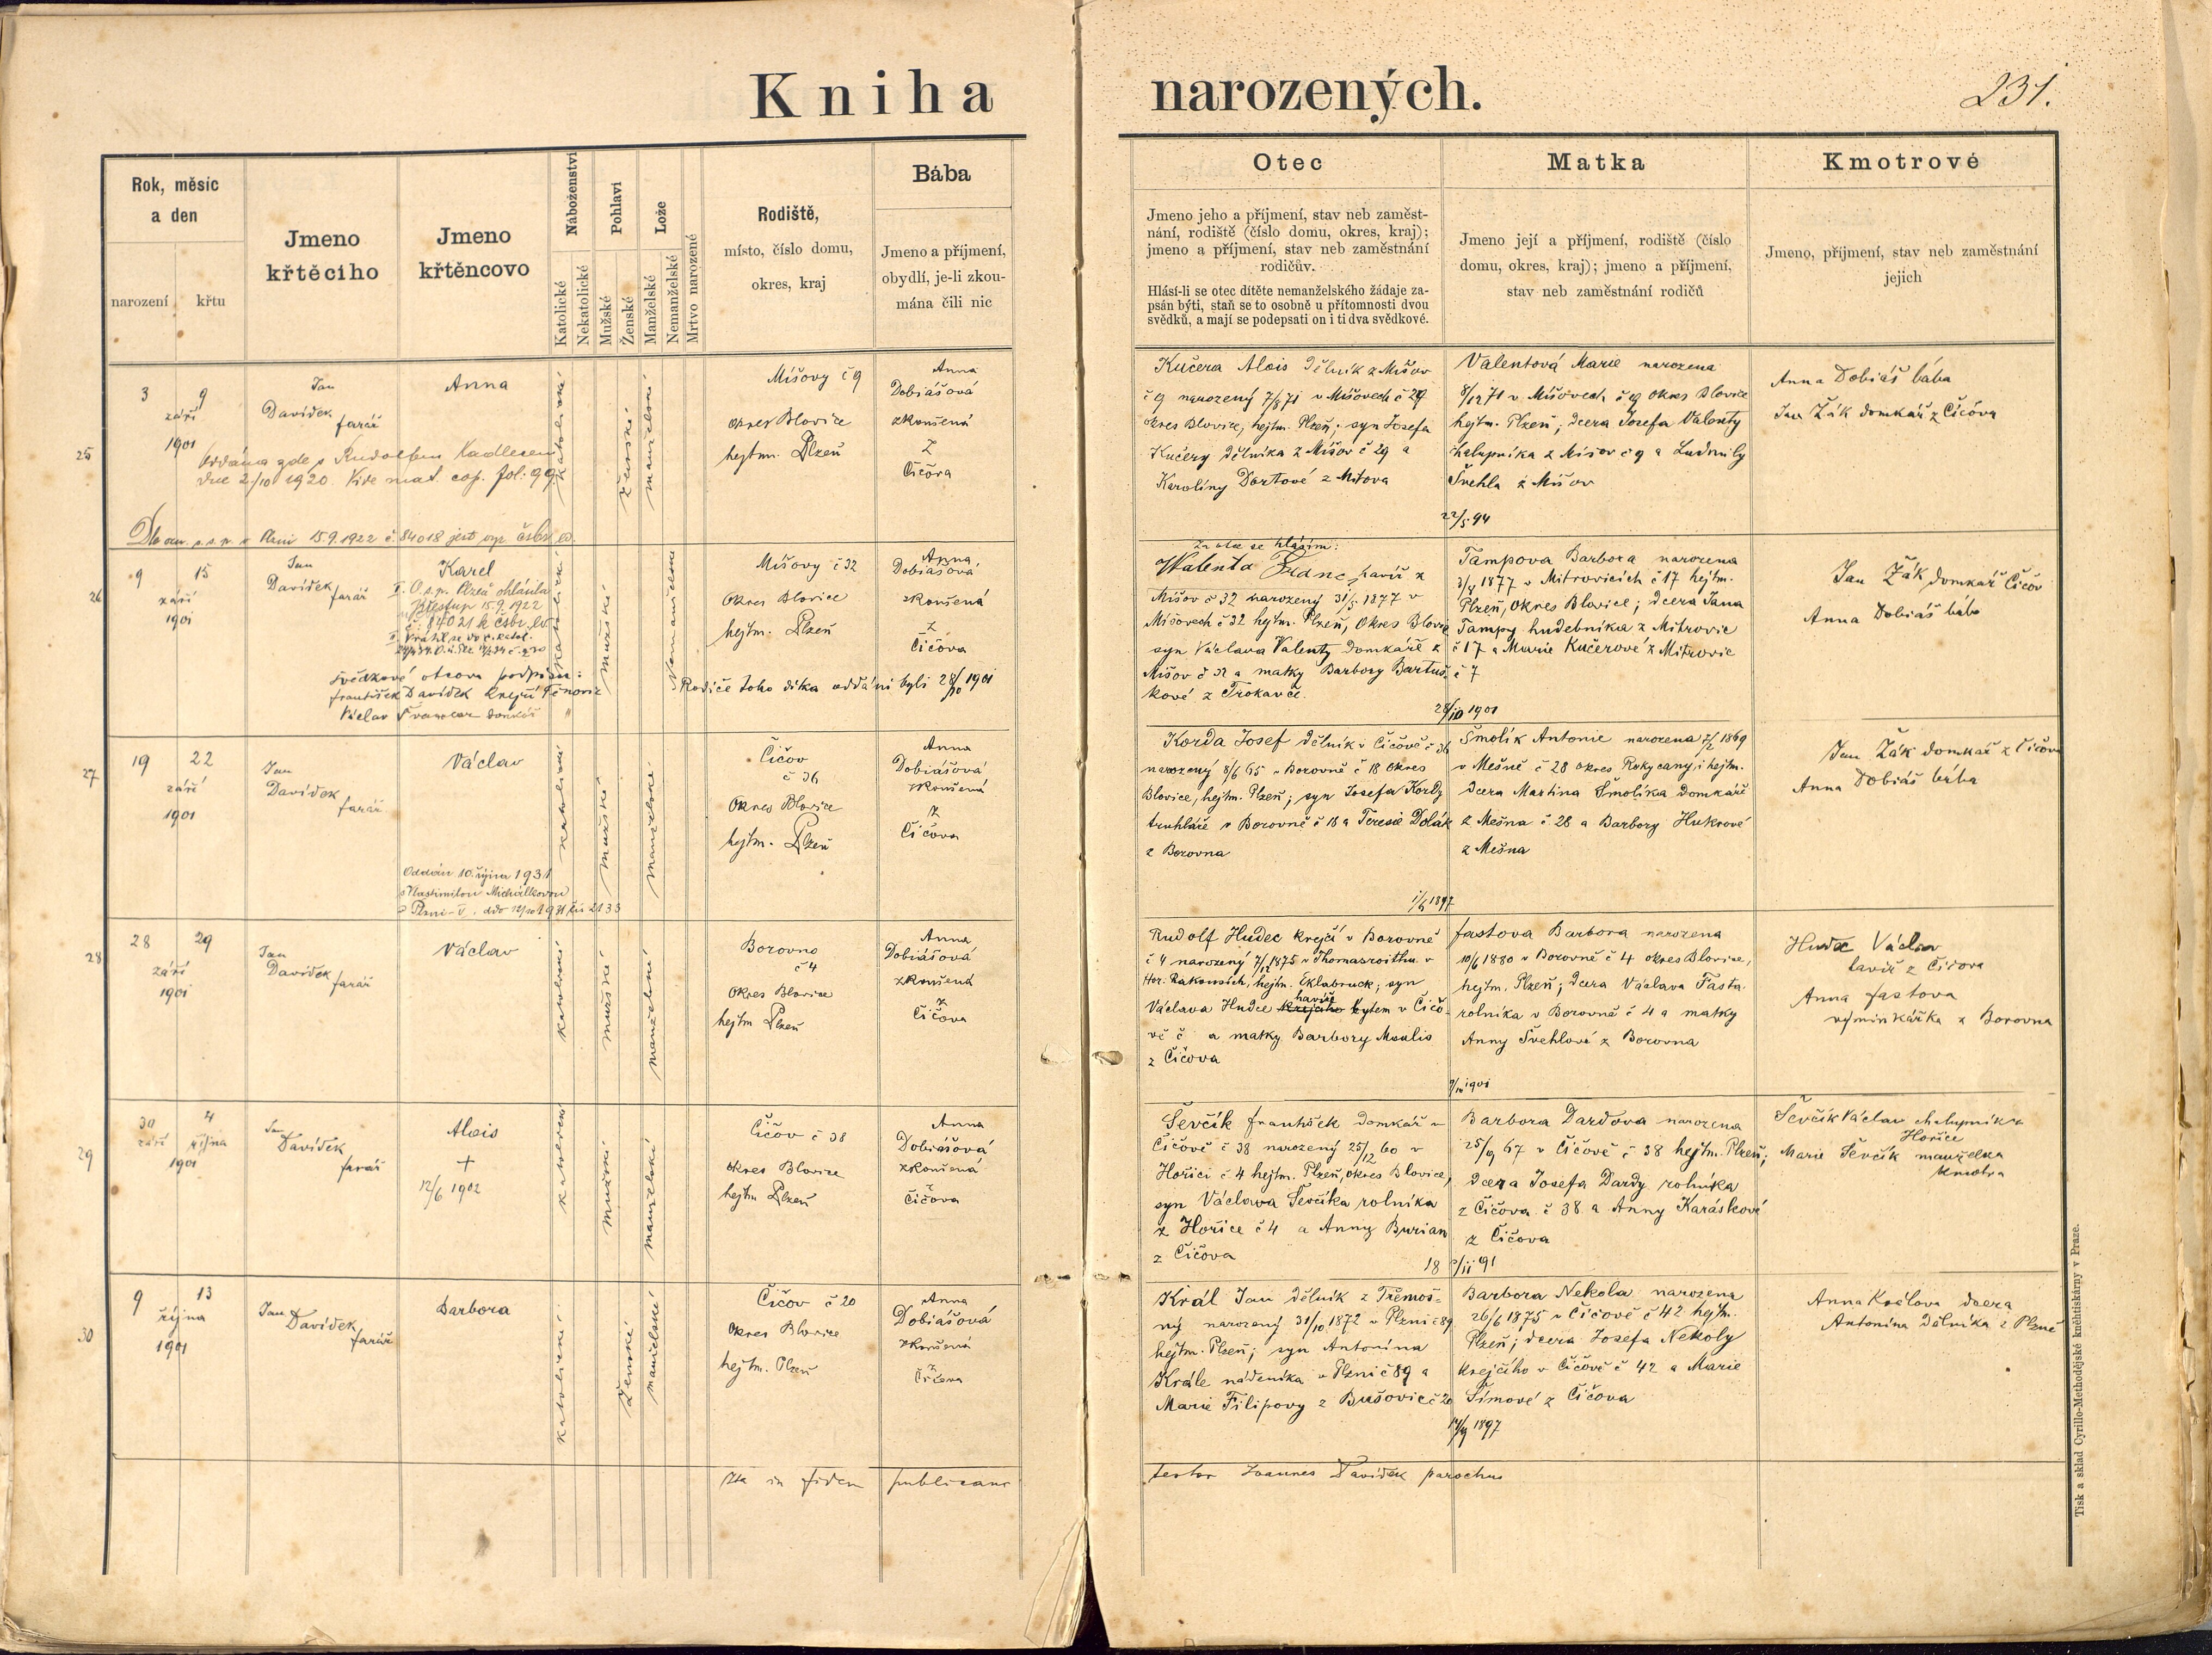 Kniha narozených.
231.
Rok, měsíc
a den
narození
křtu
Jmeno
křtěcího
Jmeno
křtěncovo
Náboženství
Katolické
Nekatolické
Pohlaví
Mužské
Ženské
Lože
Manželské
Nemanželské
Mrtvo narozené
Rodiště,
místo, číslo domu,
okres, kraj
Bába
Jmeno a příjmení,
obydlí, je-li zkou-
mána čili nic
Otec
Jmeno jeho a příjmení, stav neb zaměst-
nání, rodiště (číslo domu, okres, kraj);
jmeno a příjmení, stav neb zaměstnání
rodičův.
Hlásí-li se otec dítěte nemanželského žádaje za-
psán býti, staň se to osobně u přítomnosti dvou
svědků, a mají se podepsati on i ti dva svědkové.
Matka
Jmeno její a příjmení, rodiště (číslo
domu, okres, kraj); jmeno a příjmení,
stav neb zaměstnání rodičů
Kmotrové
Jmeno, příjmení, stav neb zaměstnání
jejich
25
3 9
září
1901
Jan
Davídek
farář
Anna
Oddána zde s Rudolfem Kadlecem
dne 2./10 1920. Vide mat. cop. fol. 99.
15.9.1922 č. 84018 jest
katolické
ženské
manželské
Míšovy č 9
okres Blovice
hejtm. Plzeň
Anna
Dobiášová
zkoušená
z
Čičova
Kučera Alois dělník z Míšov
č 9 narozený 7/8 71 v Míšovech č 29
okres Blovice, hejtm. Plzeň; syn Josefa
Kučery dělníka z Míšov č 29 a
Karolíny Dortové z Mítova
Valentová Marie narozena
8/12 71 v Míšovech č 9 okres Blovice
hejtm. Plzeň; dcera Josefa Valenty
chalupníka z Míšov č 9 a Ludmily
Švehla z Míšov
22/5 94
Anna Dobiáš bába
Jan Žák domkář z Čičova
26
9 15
září
1901
Jan
Davídek farář
Karel
I. O.s.p. Plzeň ohlásila
15.9.1922
č. 84021 k čsbr.
svědkové otcova podpisu:
František Davídek krejčí
Václav domkář "
katolické
mužské
Nemanželské
Míšovy č 32
Okres Blovice
hejtm. Plzeň
Anna
Dobiášová
zkoušená
z
Čičova
Rodiče toho dítka oddáni byli 28/10 1901
Za otce se hlásím:
Walenta Franc havíř z
Míšov č 32 narozený 31/5 1877 v
Míšovech č 32 hejtm. Plzeň, Okres Blovice
syn Václava Valenty domkáře z
Míšov č 32 a matky Barbory Bartuš-
kové z Trokavče.
Tampova Barbora narozena
3/8 1877 v Mitrovicích č 17 hejtm.
Plzeň, okres Blovice; dcera Jana
Tampy hudebníka z Mitrovic
č 17 a Marie Kučerové z Mitrovic
č 7
28/10 1901
Jan Žák domkář Čičov
Anna Dobiáš bába
27
19 22
září
1901
Jan
Davídek
farář
Václav
Oddán 10. října 1931
s Vlastimilou Michálkovou
v Plzni
katolické
mužské
manželské
Čičov
č 36
Okres Blovice
hejtm. Plzeň
Anna
Dobiášová
zkoušená
z
Čičova
Korda Josef dělník v Čičově č 36
narozený 8/6 65 v Borovně č 18 okres
Blovice, hejtm. Plzeň; syn Josefa Kordy
truhláře v Borovně č 18 a Teresie Dolák
z Borovna
Šmolík Antonie narozena 7/2 1869
v Mešně č 28 okres Rokycany, i hejtm.
dcera Martina Šmolíka domkáře
z Mešna č 28 a Barbory Hukrové
z Mešna
1/6 1897
Jan Žák domkář z Čičova
Anna Dobiáš bába
28
28 29
září
1901
Jan
Davídek
farář
Václav
katolické
mužské
manželské
Borovno
č 4
Okres Blovice
hejtm Plzeň
Anna
Dobiášová
zkoušená
z
Čičova
Rudolf Hudec krejčí v Borovně
č 4 narozený 7/12 1875 v Thomasroithu v
Hor. Rakousích, hejtm. Eklabruck; syn
Václava Hudce krejčího havíře bytem v Čičo-
vě č a matky Barbory Moulis
z Čičova
Fastova Barbora narozena
10/6 1880 v Borovně č 4 okres Blovice,
hejtm. Plzeň; dcera Václava Fasta
rolníka v Borovně č 4 a matky
Anny Švehlové z Borovna
1901
Hudec Václav
havíř z Čičova
Anna Fastova
výminkářka z Borovna
29
30 4
září října
1901
Jan
Davídek
farář
Alois
+
12/6 1902
katolické
mužské
manželské
Čičov č 38
okres Blovice
hejtm Plzeň
Anna
Dobiášová
zkoušená
z
Čičova
Ševčík František domkář v
Čičově č 38 narozený 25/12 60 v
Hořici č 4 hejtm. Plzeň, okres Blovice,
syn Václava Ševčíka rolníka
z Hořice č 4 a Anny Burian
z Čičova
Barbora Dardova narozena
25/9 67 v Čičově č 38 hejtm. Plzeň;
dcera Josefa Dardy rolníka
z Čičova č 38 a Anny Karáskové
z Čičova
Ševčík Václav chalupník z
Hořice
Marie Ševčík manželka
kmotra
30
9 13
října
1901
Jan
Davídek
farář
Barbora
katolické
Ženské
manželské
Čičov č 20
Okres Blovice
hejtm. Plzeň
Anna
Dobiášová
zkoušená
z
Čičova
Král Jan dělník z Třemoš-
ný narozený 31/10 1872 v Plzni č 89
hejtm. Plzeň; syn Antonína
Krále nádeníka v Plzni č 89 a
Marie Filipovy z Bušovic č 20
Barbora Nekola narozena
26/6 1875 v Čičově č 42 hejtm.
Plzeň; dcera Josefa Nekoly
krejčího v Čičově č 42 a Marie
Šímové z Čičova
1897
Anna Králova dcera
Antonína dělníka z Plzně
Ita in fidem publicam
testor Joannes Davídek parochus
Tisk a sklad Cyrillo-Methodějské knihtiskárny v Praze.